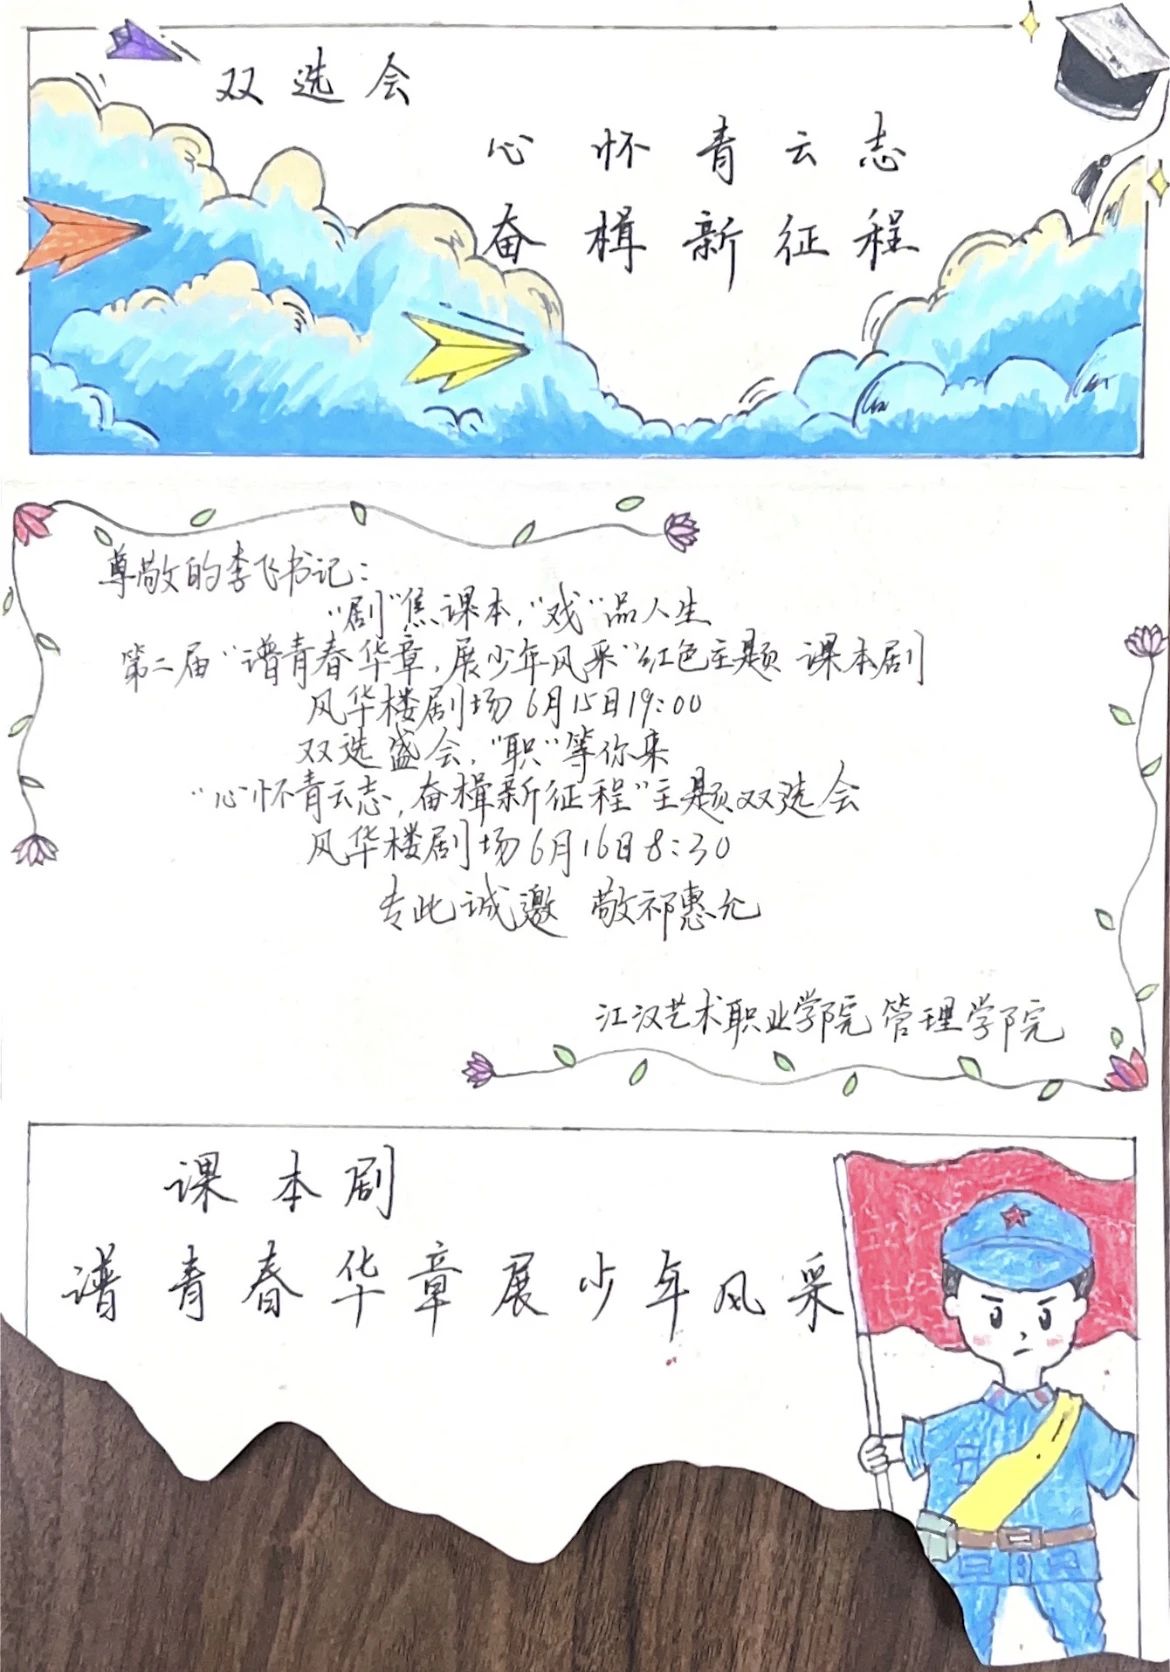 双选会
心怀青云志
奋楫新征程
尊敬的李飞书记：
“剧”焦课本，“戏”品人生
第二届“谱青春华章，展少年风采”红色主题 课本剧
风华楼剧场6月15日19:00
双选盛会，“职”等你来
“心怀青云志，奋楫新征程”主题双选会
风华楼剧场6月16日8:30
专此诚邀 敬祈惠允
江汉艺术职业学院 管理学院
课本剧
谱青春华章展少年风采